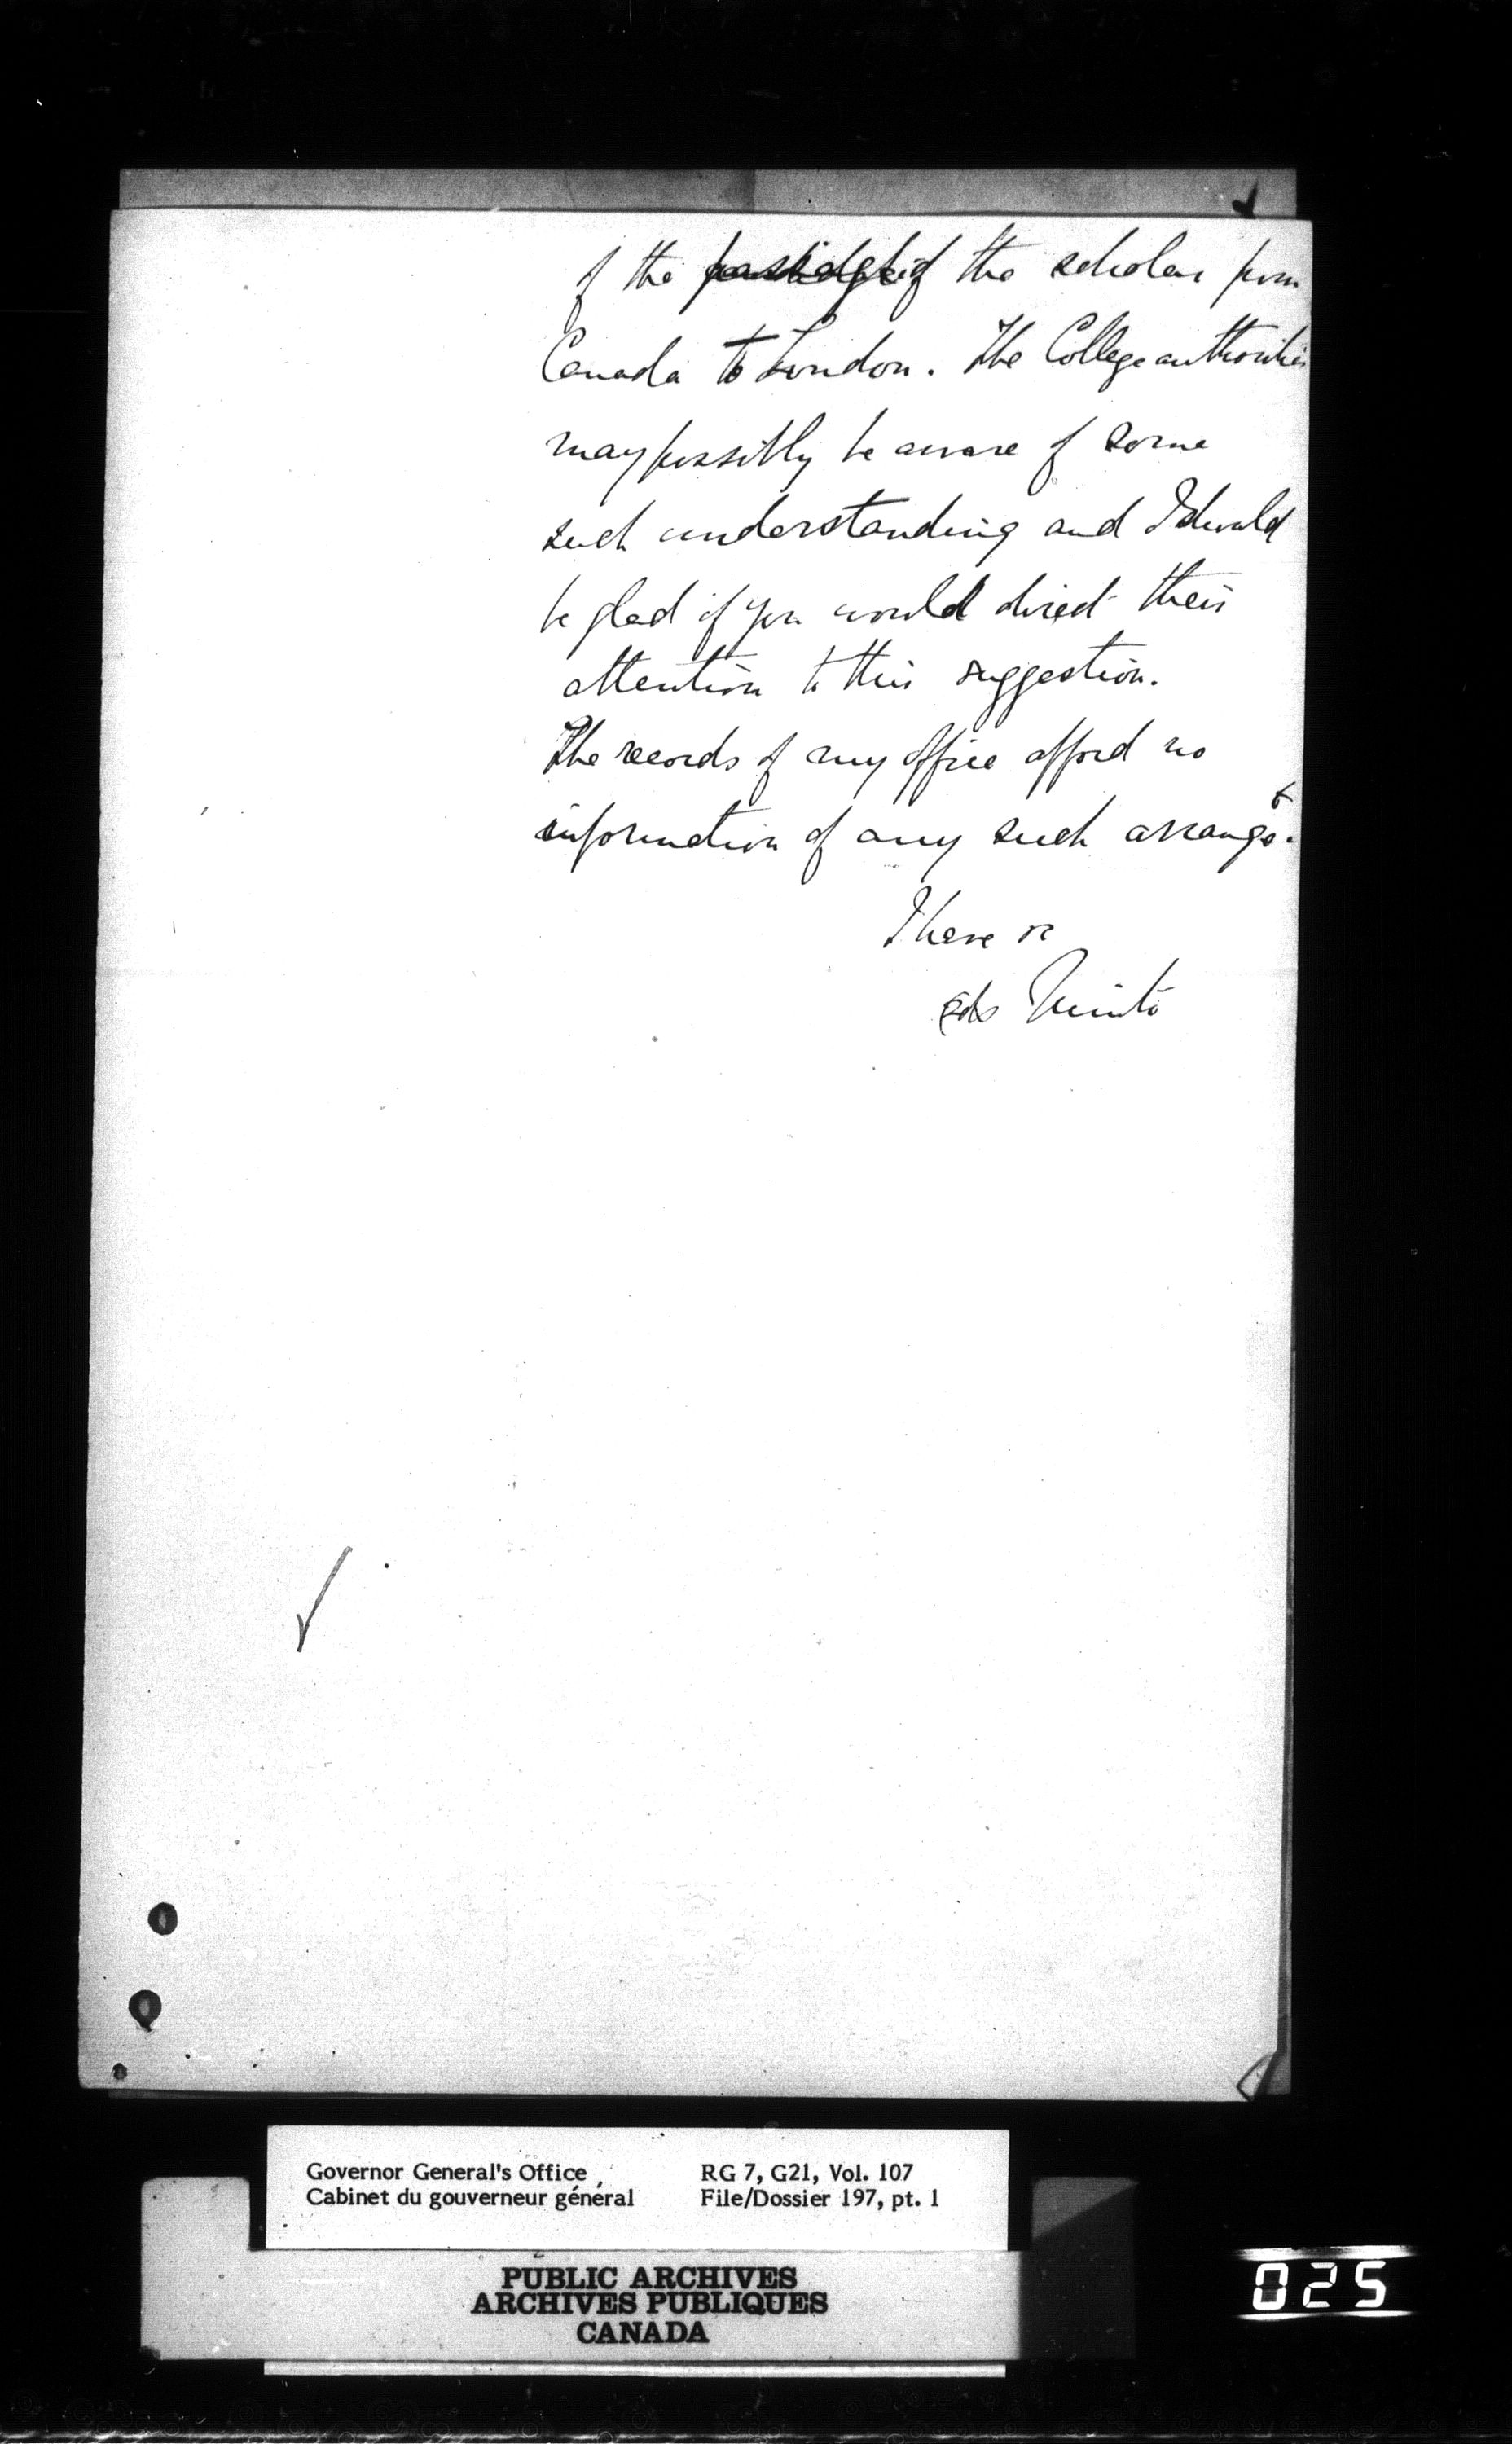 of the passage of the scholar from
Canada to London. The College authorities
may possibly be aware of some
such understanding and I should
be glad if you would direct their
attention to this suggestion.
The records of my office afford no
information of any such arrangt.
I have
sd Minto
Governor General's Office
Cabinet du gouverneur général
RG 7, G21, Vol. 107
File/Dossier 197, pt. 1
PUBLIC ARCHIVES
ARCHIVES PUBLIQUES
CANADA
025